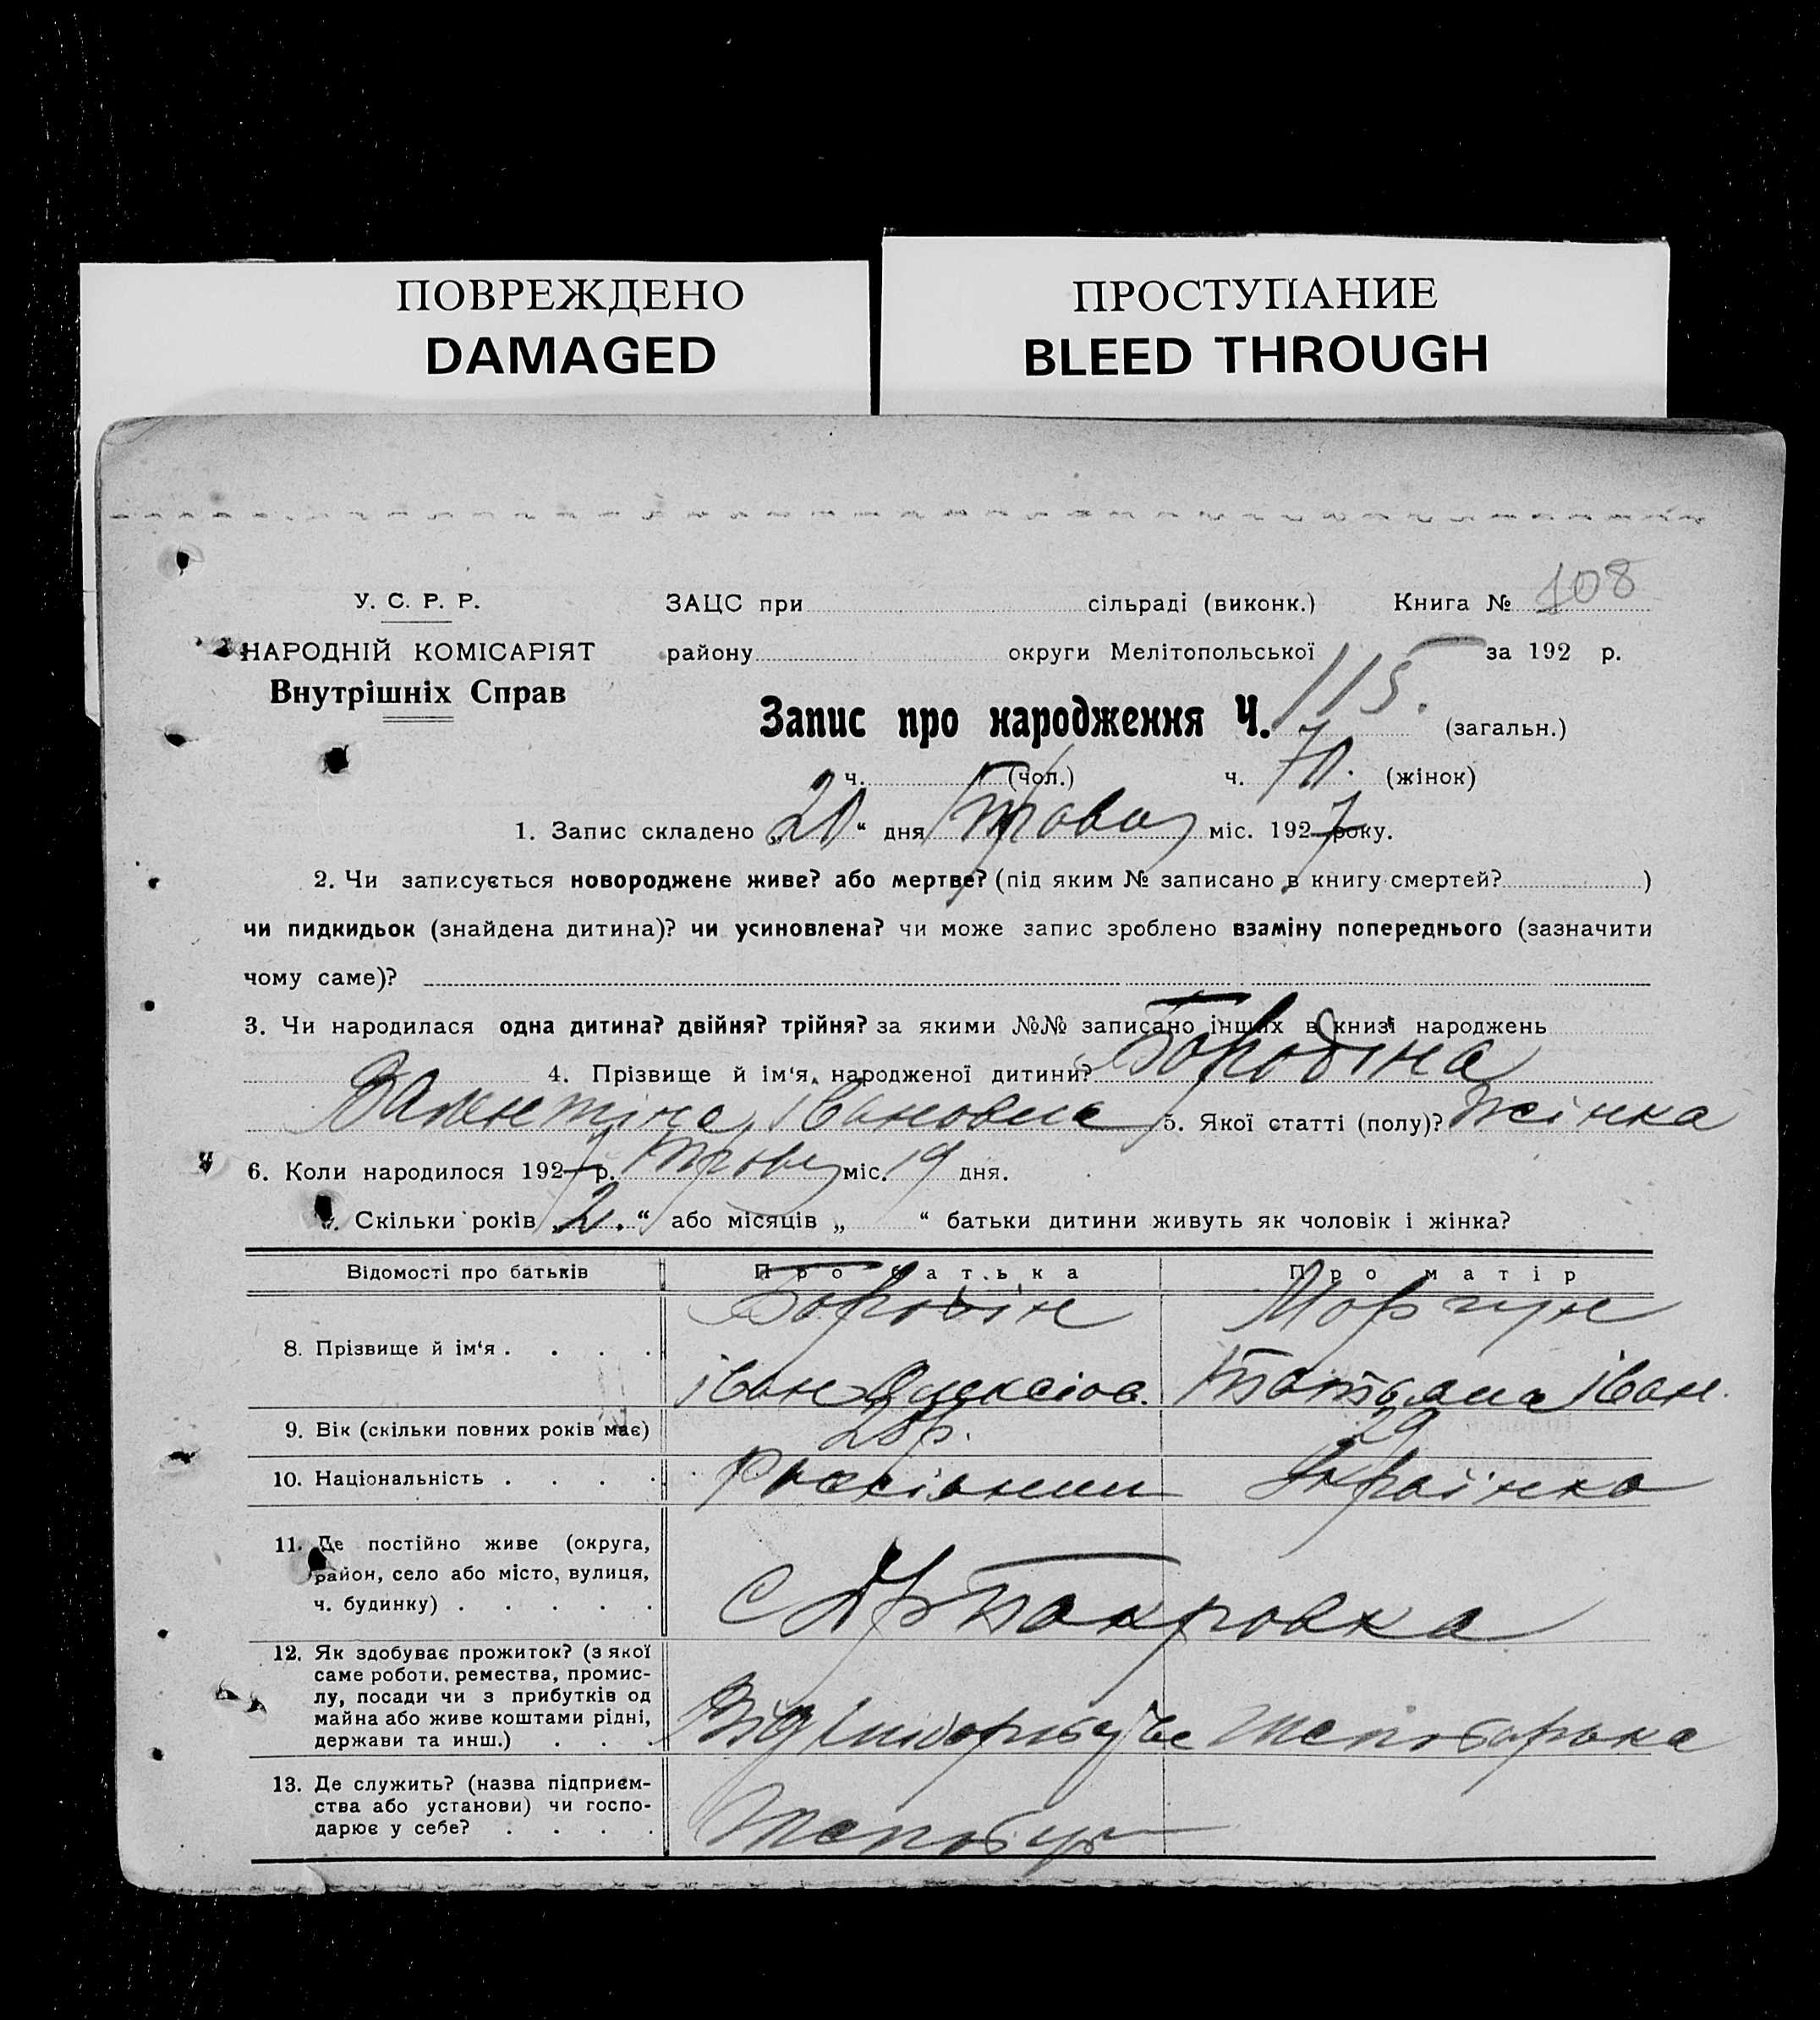 ПОВРЕЖДЕНО
DAMAGED
ПРОСТУПАНИЕ
BLEED THROUGH
108
У. С. Р. Р. ЗАЦС при сільраді (виконк.) Книга №
НАРОДНІЙ КОМІСАРІЯТ району округи Мелітопольської за 192 р.
Внутрішніх Справ
Запис про народження Ч. 115. (загальн.)
ч. (чол.) ч. 70. (жінок)
1. Запис складено „20“ дня Травня міс. 1927 року.
2. Чи записується новороджене живе? або мертве? (під яким № записано в книгу смертей? )
чи пидкидьок (знайдена дитина)? чи усиновлена? чи може запис зроблено взаміну попереднього (зазначити
чому саме)?
3. Чи народилася одна дитина? двійня? трійня? за якими №№ записано інших в книзі народжень
4. Прізвище й ім'я народженої дитини? Бородіна
Валентіна Івановна 5. Якої статті (полу)? Жінка
6. Коли народилося 1927 р. Травня міс. 19 дня.
Скільки років „2.“ або місяців „ “ батьки дитини живуть як чоловік і жінка?
Відомості про батьків Про батька Про матір
Бородін Моргун
8. Прізвище й ім'я . . . .
Іван Олексіов. Татьяна Іван.
9. Вік (скільки повних років має) 28 р. 29
10. Національність . . . . Українка
11. Де постійно живе (округа,
район, село або місто, вулиця,
ч. будинку) . . . . .
12. Як здобуває прожиток? (з якої
саме роботи, ремества, промис-
лу, посади чи з прибутків од
майна або живе коштами рідні,
держави та инш.) . . .
13. Де служить? (назва підприєм-
ства або установи) чи госпо-
дарює у себе? . . . .